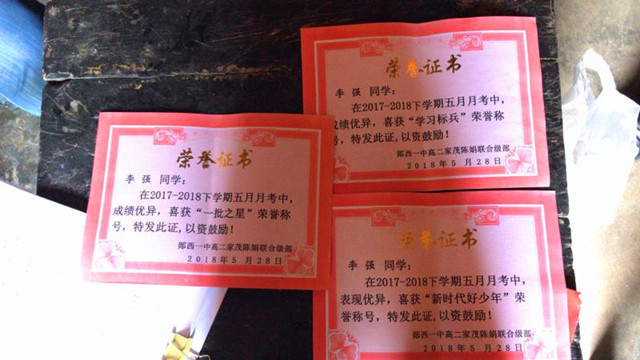 荣誉证书
李强 同学：
在2017-2018下学期五月月考中,
成绩优异，喜获“学习标兵”荣誉称
号，特发此证,以资鼓励！
郧西一中高二家茂陈娟联合级部
2018年5月28日
荣誉证书
李强 同学：
在2017-2018下学期五月月考中,
成绩优异，喜获“一批之星”荣誉称
号，特发此证,以资鼓励！
郧西一中高二家茂陈娟联合级部
2018年5月28日
荣誉证书
李强 同学：
在2017-2018下学期五月月考中,
表现优异，喜获“新时代好少年”荣
誉称号，特发此证,以资鼓励！
郧西一中高二家茂陈娟联合级部
2018年5月28日